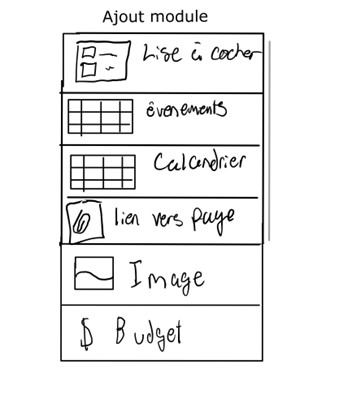 Ajout module
Lise à cocher
évenements
Calcandrier
lien vers page
Image
$ Budget